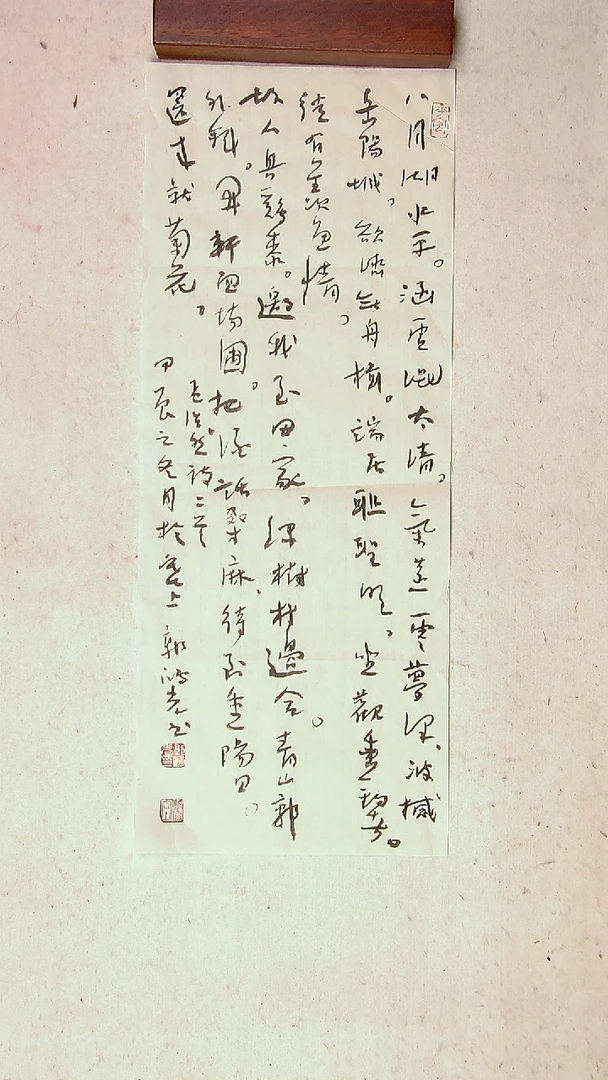 八月湖水平。涵虛混太清。氣蒸雲夢澤、波撼
岳陽城。欲濟無舟楫。端居恥聖明、坐觀垂釣者。
徒有羨魚情。
故人具雞黍。邀我至田家。綠樹村邊合。青山郭
外斜。開軒面場圃。把酒話桑麻、待到重陽日。
還來就菊花。
孟浩然詩二首
甲辰之冬月於上 郭鴻光書